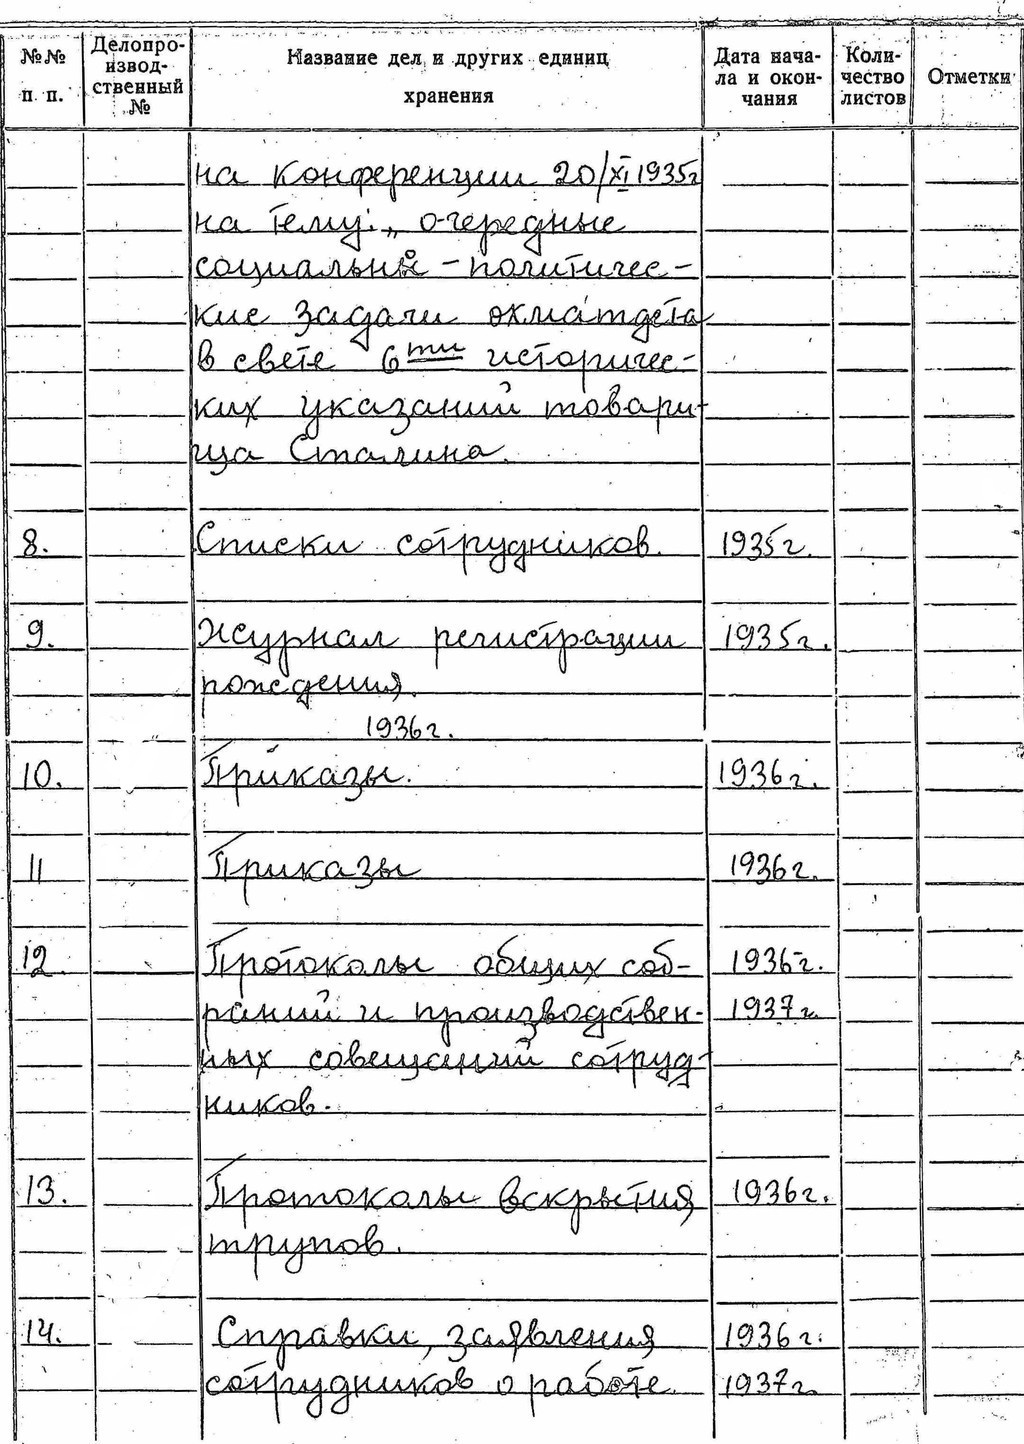 №№ п. п. Делопро-извод-ственный № Название дел и других единиц хранения Дата нача-ла и окон-чания Коли-чество листов Отметки
на конференции 20/XI 1935г
на тему: „ очередные
социально - политичес-
кие задачи охматдета
в свете 6ти историчес-
ких указаний товари-
ща Сталина.
8. Списки сотрудников. 1935г.
9. Журнал регистрации 1935г.
рождения.
1936г.
10. Приказы. 1936г.
11 Приказы 1936г.
12. Протоколы общих соб- 1936г.
раний и производствен- 1937г.
ных совещаний сотруд-
ников.
13. Протоколы вскрытия 1936г.
трупов.
14. Справки, заявления 1936г.
сотрудников о работе. 1937г.